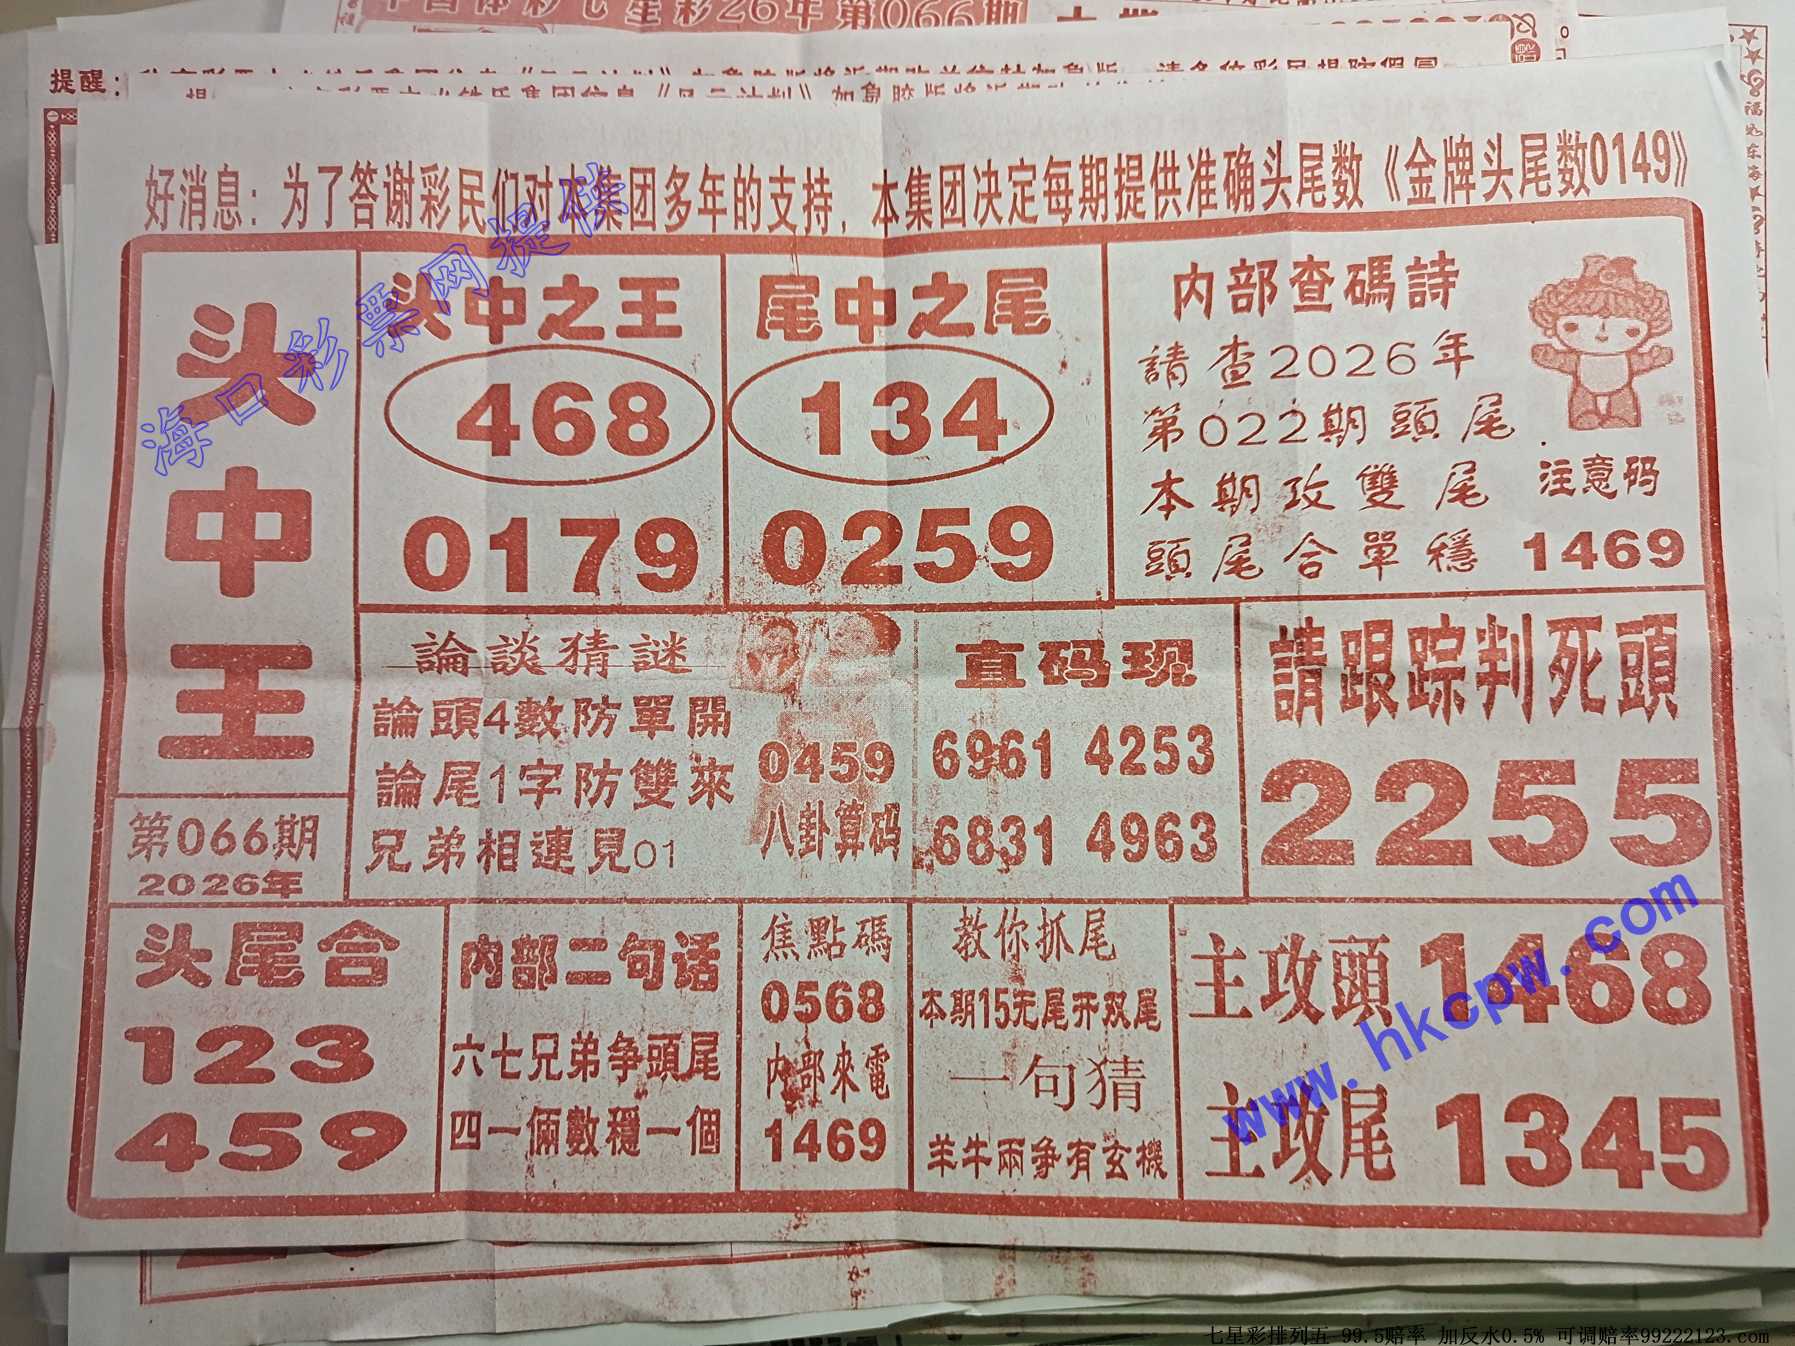 中国体彩七星彩26年第066期
提醒：
好消息：为了答谢彩民们对本集团多年的支持，本集团决定每期提供准确头尾数《金牌头尾数0149》
头中王
第066期
2026年
头中之王
468
0179
尾中之尾
134
0259
内部查碼詩
請查2026年
第022期頭尾
本期攻雙尾
頭尾合單穩
注意码
1469
論談猜謎
論頭4數防單開
論尾1字防雙來
兄弟相連見01
0459
八卦算码
直码现
6961 4253
6831 4963
請跟踪判死頭
2255
头尾合
123
459
内部二句话
六七兄弟争頭尾
四一倆數穩一個
焦點碼
0568
内部來電
1469
教你抓尾
本期15无尾开双尾
一句猜
羊牛兩爭有玄機
主攻頭 1468
主攻尾 1345
海口彩票网提供
www.hkcpw.com
七星彩排列五 99.5赔率 加反水0.5% 可调赔率99222123.com